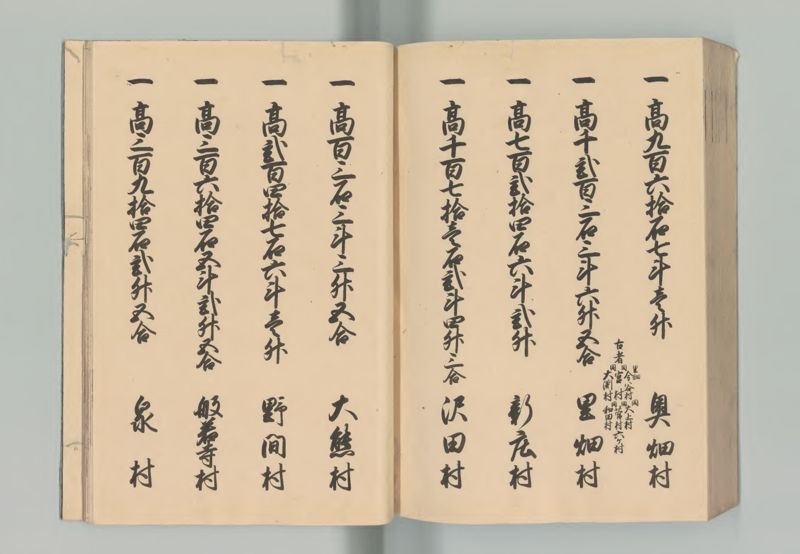 一 高九百六拾石七斗壱升 奥畑村
一 高千弐百三石三斗六升五合 里畑村
古者
同今谷村同入上村
同宮村同
同大渕村 和田村 六ヶ村
一 高七百弐拾四石六斗弐升 新庄村
一 高千百七拾壱石弐斗四升三合 沢田村
一 高百三石三斗三升五合 大熊村
一 高弐百四拾七石六斗壱升 野間村
一 高三百六拾四石五斗弐升五合 般若寺村
一 高三百九拾四石弐升五合 泉村